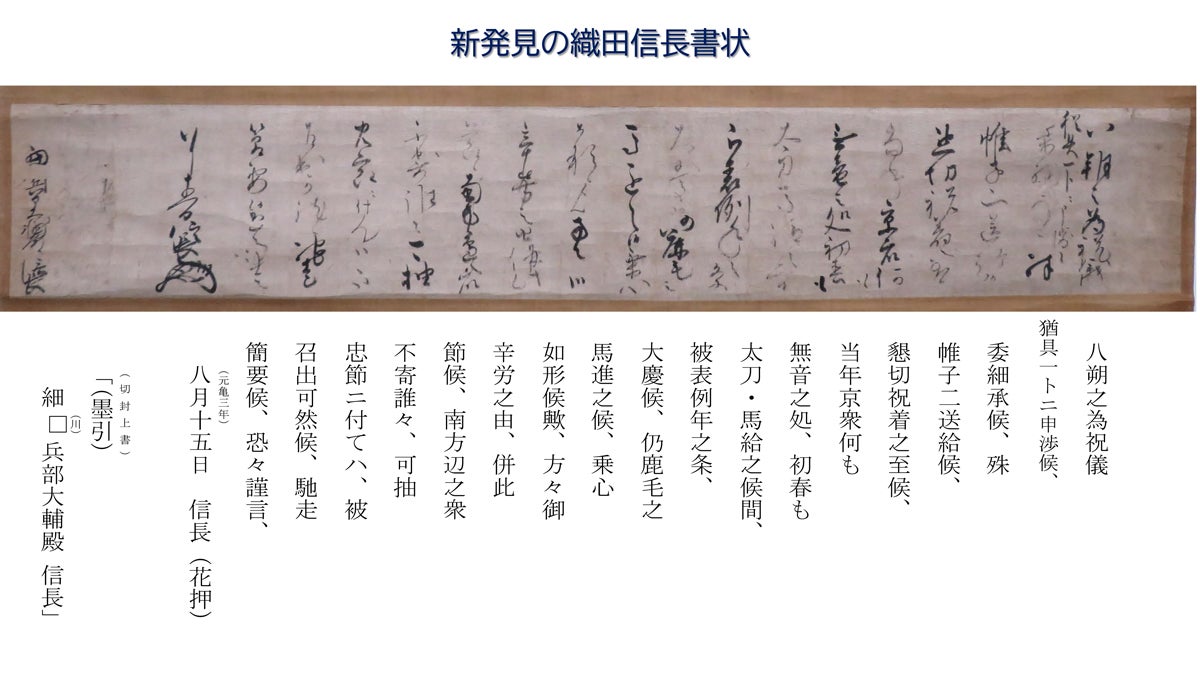 新発見の織田信長書状
八朔之為祝儀
猶具一卜ニ申渉候、
委細承候、殊
帷子二送給候、
懇切祝着之至候、
当年京衆何も
無音之処、初春も
太刀・馬給之候間、
被表例年之条、
大慶候、仍鹿毛之
馬進之候、乗心
如形候歟、方々御
辛労之由、併此
節候、南方辺之衆
不寄誰々、可抽
忠節ニ付てハ、被
召出可然候、馳走
簡要候、恐々謹言、
(元亀三年)
八月十五日　信長（花押）
(切封上書)
「（墨引）
(川)
細□兵部大輔殿 信長」